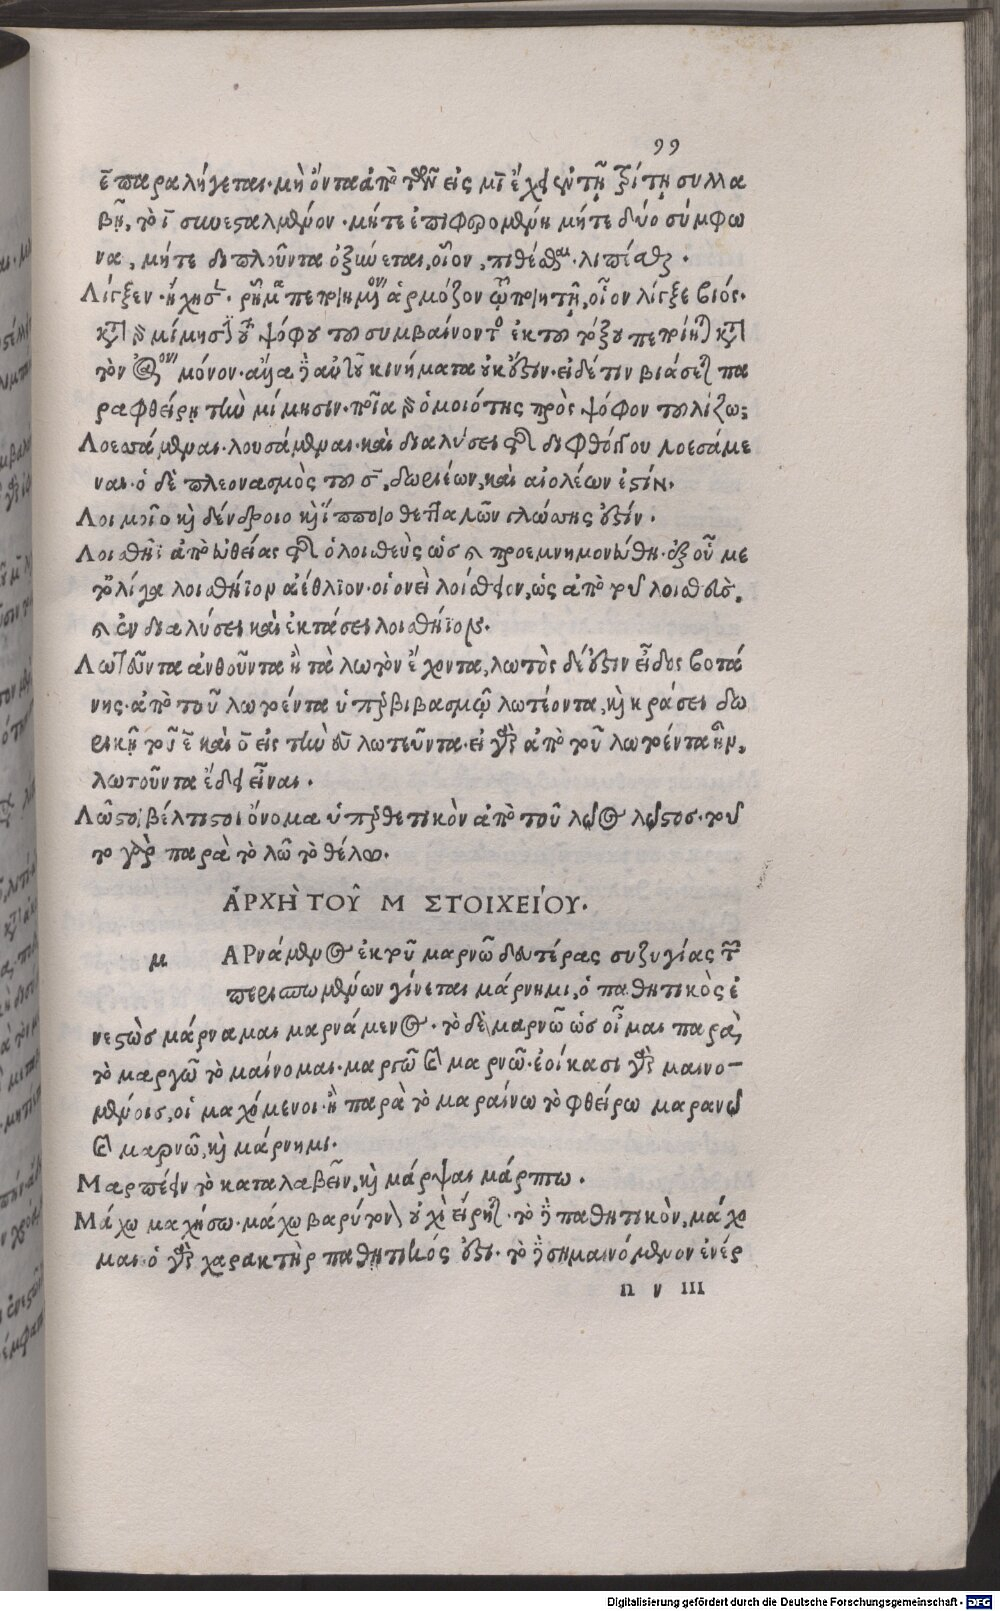 99
ε̄ παραλήγεται. μὴ ὄντα ἀπὸ τῶν εἰς μῑ ἔχειν ἐν τῇ τρίτῃ συλλα
βῇ, τὸ ῑ συνεσταλμένον. μήτε ἐπιφερομένη μήτε δύο σύμφω
να, μήτε διπλοῦν τὰ ὀξύνεται, οἷον, πιθέσθαι. λιπέσθαι.
Λίγξεν. ἤχησε. ῥῆμα πεποιημένον ἁρμόζον τῷ ποιητῇ, οἷον λίγξε βιός.
κατὰ μίμησιν τοῦ ψόφου τοῦ συμβαίνοντος ἐκ τοῦ τόξου πεποίηται κατὰ
τὸν μόνον. ἄλλα δὲ αὐτοῦ κινήματα οὐκ ἔστιν. εἰ δέ τιν βιάσεται πα
ραφθείρῃ τὴν μίμησιν. ποία ὁμοιότης πρὸς ψόφον τοῦ λίζω;
Λοεσσάμεναι. λουσάμεναι. καὶ διαλύσει τῆς διφθόγγου λοεσάμε
ναι. ὁ δὲ πλεονασμὸς τοῦ σ̄, δωριέων, καὶ αἰολέων ἐστίν.
Λοιμοῖο καὶ δένδροιο καὶ ἵπποιο θετταλῶν γλώσσης ἐστίν.
Λοισθῆϊ ἀπὸ εὐθείας τῆς ὁ λοισθεὺς ὡς προεμνημονεύθη. ἐξ οὗ με
λοισθήϊον ἀέθλιον. οἱονεὶ λοίσθειον, ὡς ἀπὸ τοῦ λοισθεύς.
ἐν διαλύσει καὶ ἐκτάσει λοισθήϊον.
Λωτοῦντα ἀνθοῦντα ἢ τὰ λωτὸν ἔχοντα, λωτὸς δέ ἐστιν εἶδος βοτά
νης. ἀπὸ τοῦ λωτόεντα ὑπερβιβασμῷ λωτέοντα, καὶ κράσει δω
ρικῇ τοῦ ε̄ καὶ ο̄ εἰς τὴν ευ λωτεῦντα. εἰ γὰρ ἀπὸ τοῦ λωτόεντα ἦν,
λωτοῦντα ἔδει εἶναι.
Λῶστοι, βέλτιστοι ὄνομα ὑπερθετικὸν ἀπὸ τοῦ λῷος λῷστος. τοῦ
το γὰρ παρὰ τὸ λῶ τὸ θέλω.
ἈΡΧῊ ΤΟΥ͂ Μ ΣΤΟΙΧΕΊΟΥ.
μ ΑΡνάμενος ἐκ τοῦ μαρνῶ δευτέρας συζυγίας τῶν
περισπωμένων γίνεται μάρνημι, ὁ παθητικὸς ἐ
νεστὼς μάρναμαι μαρνάμενος. τὸ δὲ μαρνῶ ὡς οἶμαι παρὰ
τὸ μαργῶ τὸ μαίνομαι. μαργῶ καὶ μαρνῶ. ἐοίκασι γὰρ μαινο-
μένοις, οἱ μαχόμενοι. ἢ παρὰ τὸ μαραίνω τὸ φθείρω μαρανῶ
καὶ μαρνῶ, καὶ μάρνημι.
Μαρπέειν τὸ καταλαβεῖν, καὶ μάρψαι μάρπτω.
Μάχω μαχήσω. μάχω βαρύτονον οὐχὶ εἴρηται. τὸ δὲ παθητικὸν, μάχο
μαι. ὁ γὰρ χαρακτὴρ παθητικός ἐστι. τὸ δὲ σημαινόμενον ἐνέρ
n ν III
Digitalisierung gefördert durch die Deutsche Forschungsgemeinschaft - DFG